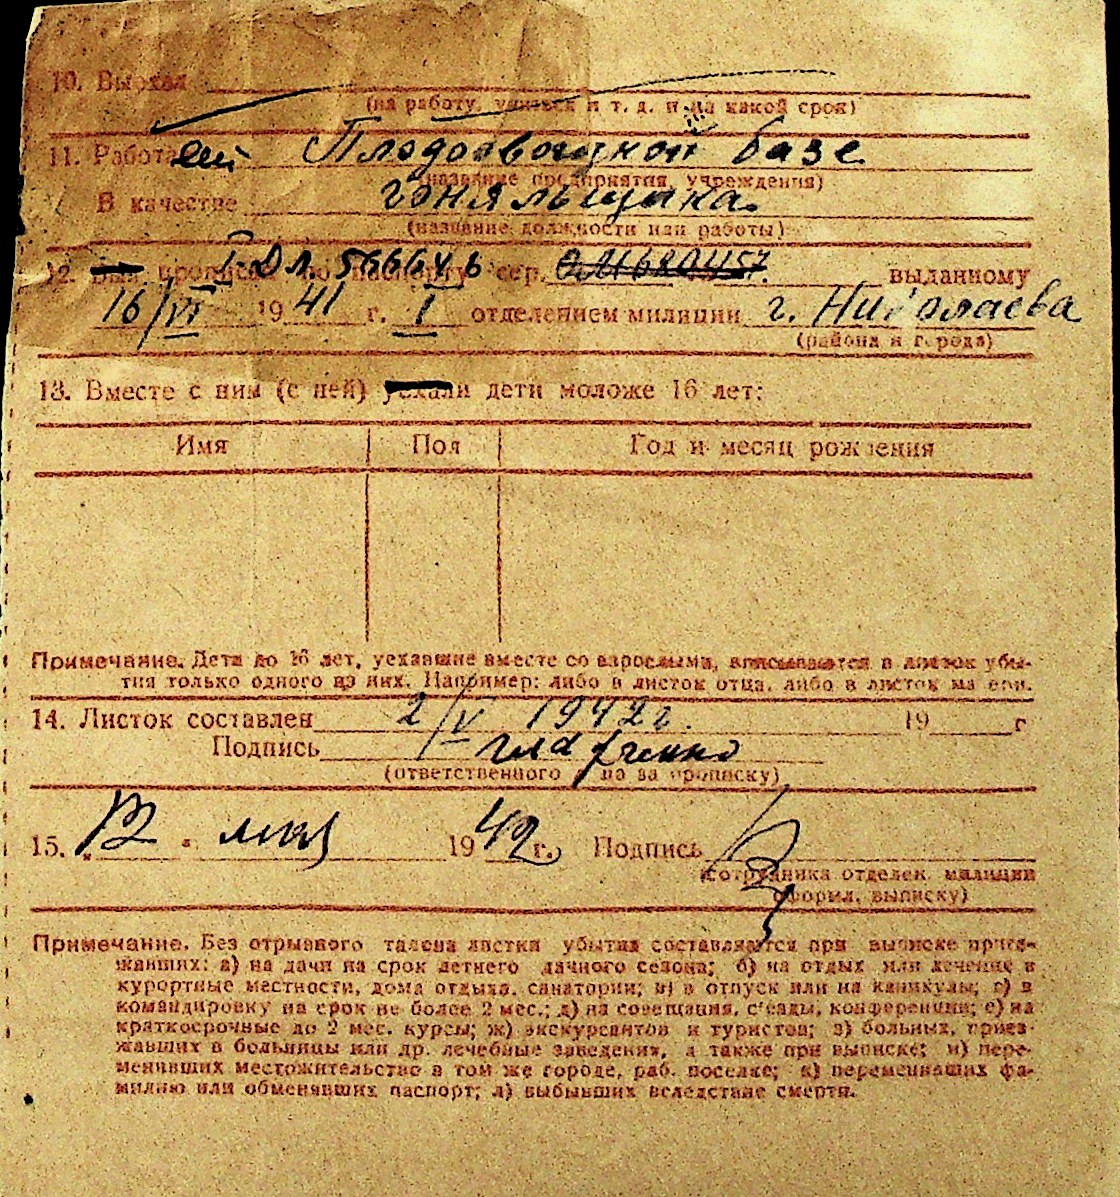 10. Выехал
(на работу, учиться и т. д. и на какой срок)
11. Работает Плодоовощной базе
(название предприятия, учреждения)
В качестве
(название должности или работы)
12. прописан по паспорту сер. выданному
16/VI 1941 г. I отделением милиции г. Николаева
(района и города)
13. Вместе с ним (с ней) уехали дети моложе 16 лет:
Имя Пол Год и месяц рождения
Примечание. Дети до 16 лет, уехавшие вместе со взрослыми, вписываются в листок убы-
тия только одного из них. Например: либо в листок отца, либо в листок матери.
14. Листок составлен 2/V 1942 г. 19 г
Подпись
(ответственного за прописку)
15. " " мая 1942 г. Подпись
(сотрудника отделен. милиции
оформл. выписку)
Примечание. Без отрывного талона листки убытия составляются при выписке приез-
жавших: а) на дачи на срок летнего дачного сезона; б) на отдых или лечение в
курортные местности, дома отдыха, санатории; в) в отпуск или на каникулы; г) в
командировку на срок не более 2 мес.; д) на совещания, с'езды, конференции; е) на
краткосрочные до 2 мес. курсы; ж) экскурсантов и туристов; з) больных, приез-
жавших в больницы или др. лечебные заведения, а также при выписке; и) пере-
менивших местожительство в том же городе, раб. поселке; к) переменивших фа-
милию или обменявших паспорт; л) выбывших вследствие смерти.